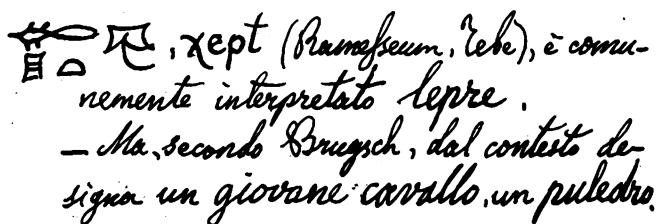 , χept (Ramesseum, Tebe), è comu-
nemente interpretato lepre.
— Ma, secondo Brugsch, dal contesto de-
signa un giovane cavallo, un puledro.